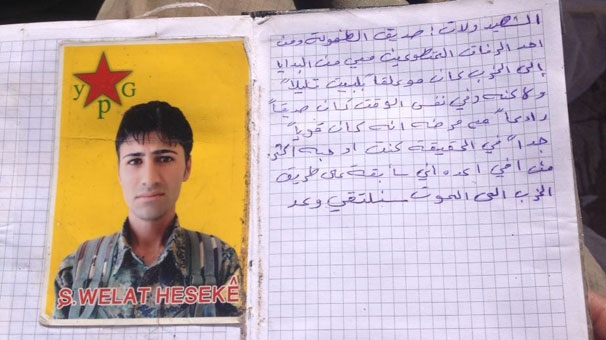 YPG
Ş. WELAT HESEKÊ
الشهيد ولات: صديق الطفولة ومن
احد الرفاق المتطوعين معي من البدايا
إلى الحرب كان متعلقاً بلبيت قليلاً
ولاكنه في نفس الوقت كان صديقاً
رادعاً مع مرضه انه كان قوياً
جداً في الحقيقه كنت اوحبه اكثر
من اخي سابقة على طريق
الحرب الى الموت سنلتقي وعد